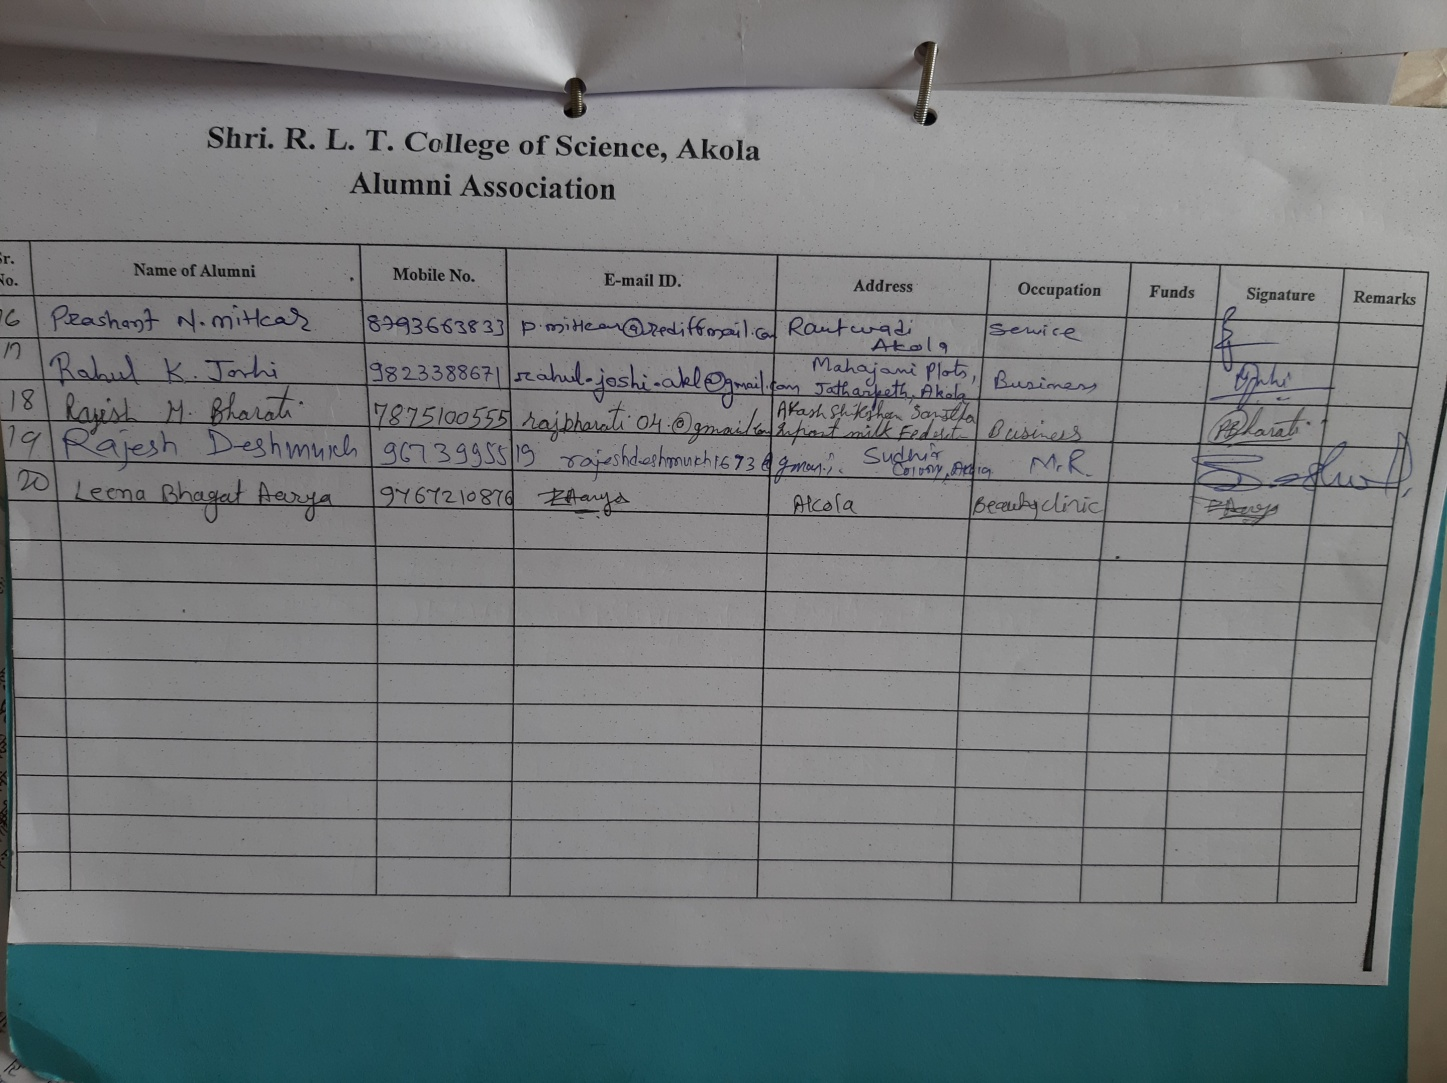 Shri. R. L. T. College of Science, Akola
Alumni Association
Sr. No. Name of Alumni Mobile No. E-mail ID. Address Occupation Funds Signature Remarks
16 Prashant N. Mitkar 8793663833 p.mitkar@rediffmail.com Rautwadi Akola Service
17 Rahul K. Joshi 9823388671 rahul.joshi.akl@gmail.com Mahajani Plots, Jatharpeth, Akola Business
18 Rajesh M. Bharati 7875100555 rajbharati04.@gmail.com Akash Shikshan Sanstha milk Business RBharati
19 Rajesh Deshmukh 9673995519 rajeshdeshmukh1673@gmail. Sudhir Colony, Akola M.R
20 Leena Bhagat Aarya 9767210876 Aarya Akola Beauty clinic Aarya